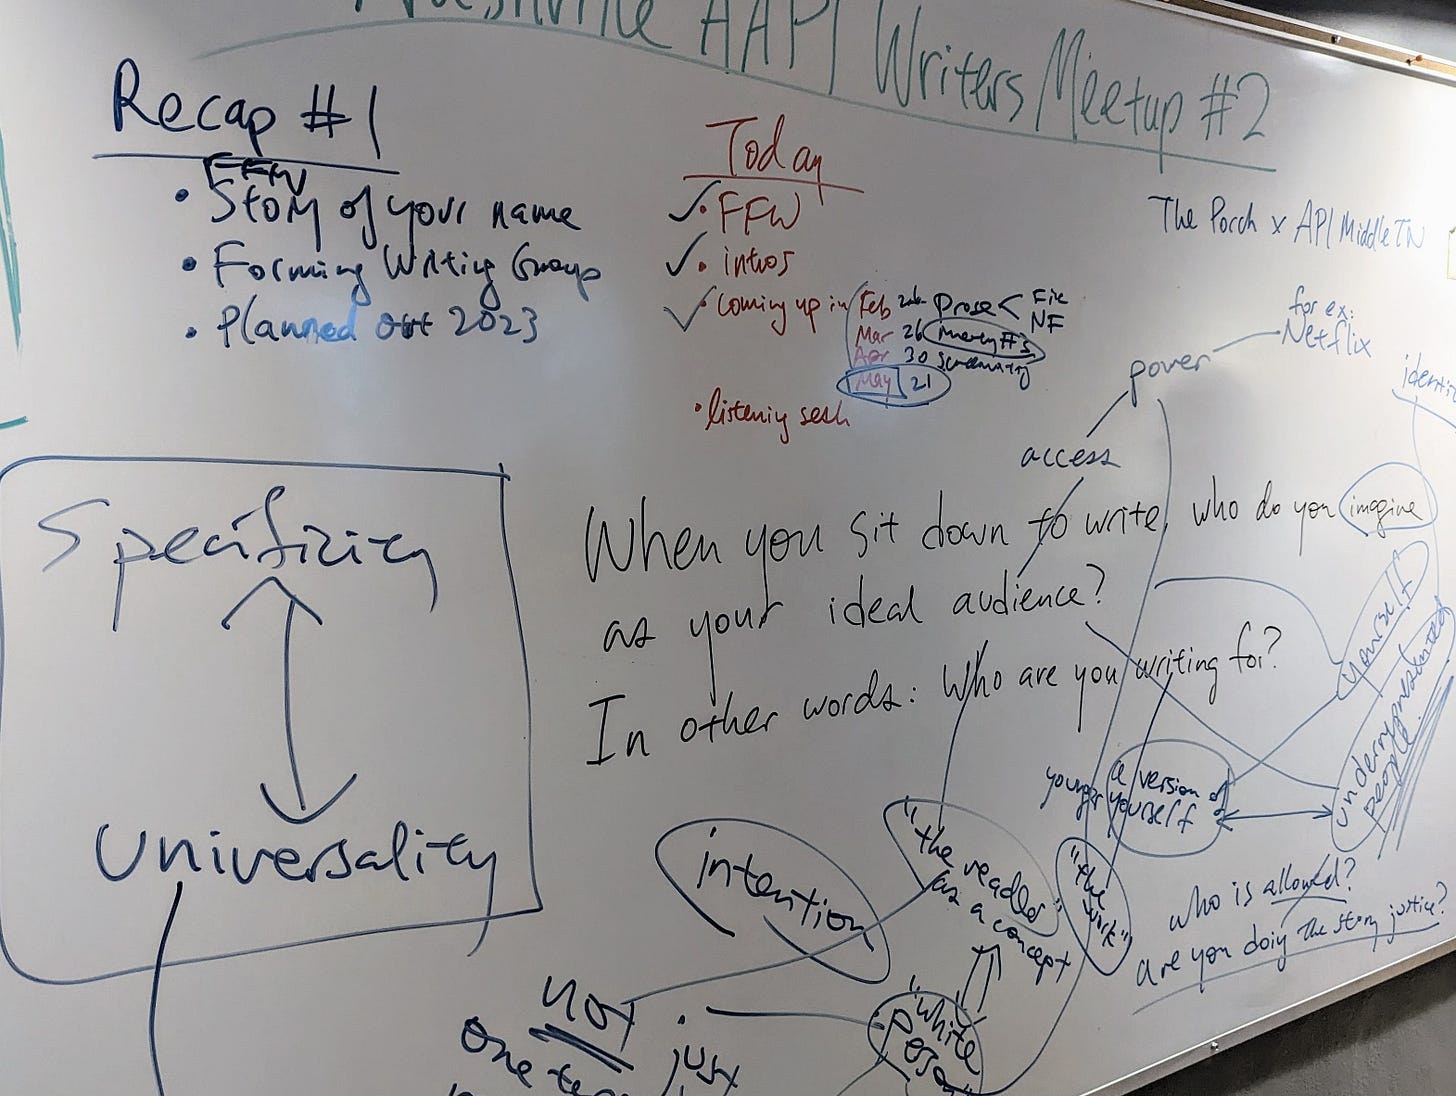 Nashville AAPI Writers Meetup #2
Recap #1
FFW
• Story of your name
• Forming Writing Group
• Planned out 2023
Today
• FFW
• intros
• coming up in
Feb 26 prose < Fic
NF
Mar 26
Apr 30
May 21
• listening sesh
The Porch x API Middle TN
for ex:
Netflix
power
access
Specificity
Universality
When you sit down to write, who do you imagine
as your ideal audience?
In other words: Who are you writing for?
yourself
underrepresented
people
a version of
younger yourself
intention
"the reader"
as a concept
"the
work"
who is allowed?
are you doing the story justice?
"white
person"
NOT
one
just